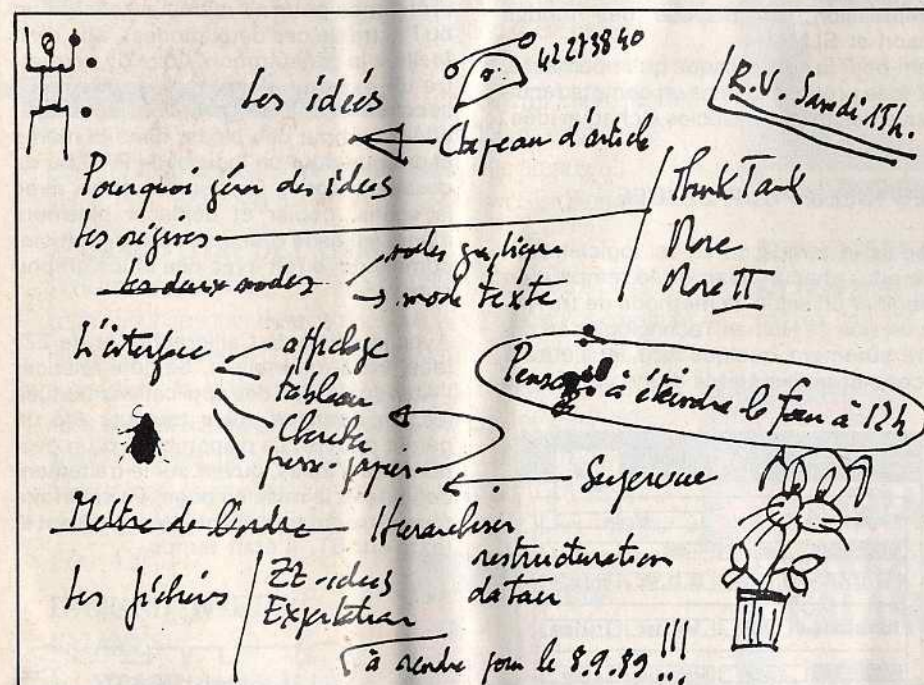 42273840
R.V. Samedi 15h.
Les idées
Chapeau d'article
Pourquoi gérer des idées
Les origines
Think Tank
More
More II
Les deux modes
mode graphique
mode texte
L'interface
affichage
tableau
Chercher
presse-papiers
Penser à éteindre le four à 12h
Supervue
Mettre de l'ordre
Hierarchiser
restructuration
Les fichiers
Exportation
à rendre pour le 8.9.89 !!!